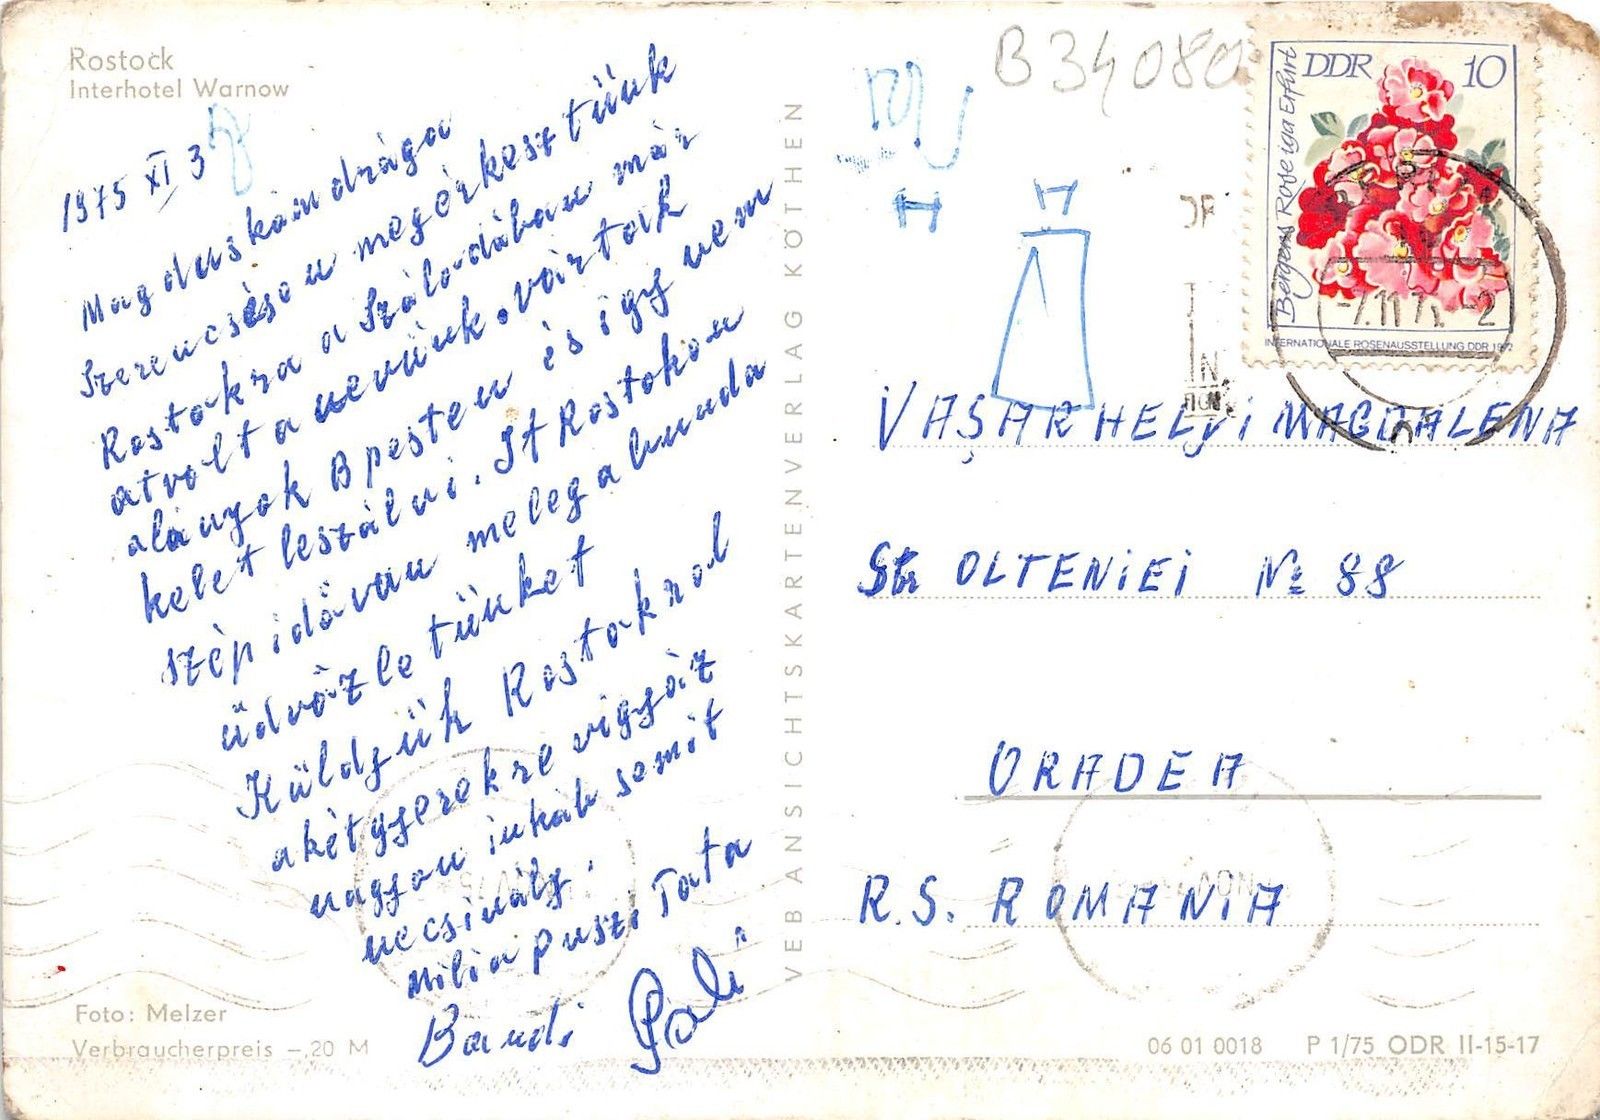 Rostock
Interhotel Warnow
1975 XI 3
Magduskám drága
Szerencsésen megérkesztünk
Rostokra a Szálodában már
átvolt a nevünk. vártak
alányok B pesten és igy nem
kelet leszálni. It Rostokon
szép idő van meleg a bunda
üdvözletünket
Küldjük Rostokrol
akét gyerekre vigyáz
nagyon inkáb semit
ne csinálj.
Milia puszi Tata
Bandi Pali
VEB ANSICHTSKARTENVERLAG KÖTHEN
Foto: Melzer
Verbraucherpreis –,20 M
B 34080
DDR 10
Bergers Rose iga Erfurt
INTERNATIONALE ROSENAUSSTELLUNG DDR 1972
-7.11.75-2
VAŞARHELyi MAGDALENA
Str OLTENIEI Nr 88
ORADEA
R.S. ROMANIA
06 01 0018 P 1/75 ODR II-15-17